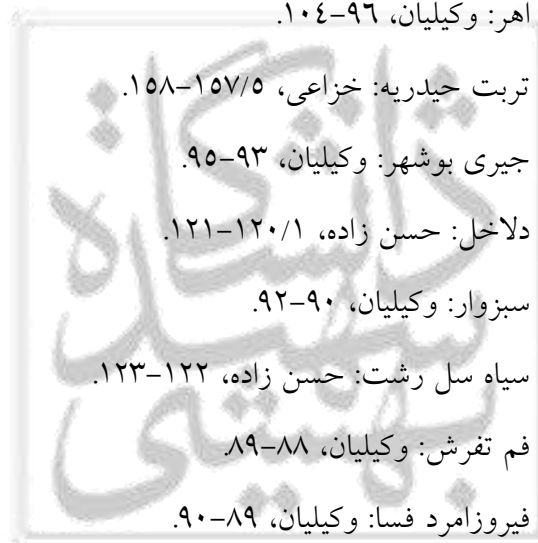 اهر: وکیلیان، ۹۶-۱۰٤.
تربت حیدریه: خزاعی، ۱۵۷/۵-۱۵۸.
جیری بوشهر: وکیلیان، ۹۳-۹۵.
دلاخل: حسن زاده، ۱۲۰/۱-۱۲۱.
سبزوار: وکیلیان، ۹۰-۹۲.
سیاه سل رشت: حسن زاده، ۱۲۲-۱۲۳.
فم تفرش: وکیلیان، ۸۸-۸۹.
فیروزامرد فسا: وکیلیان، ۸۹-۹۰.
دانشگاه
شهید
بهشتی